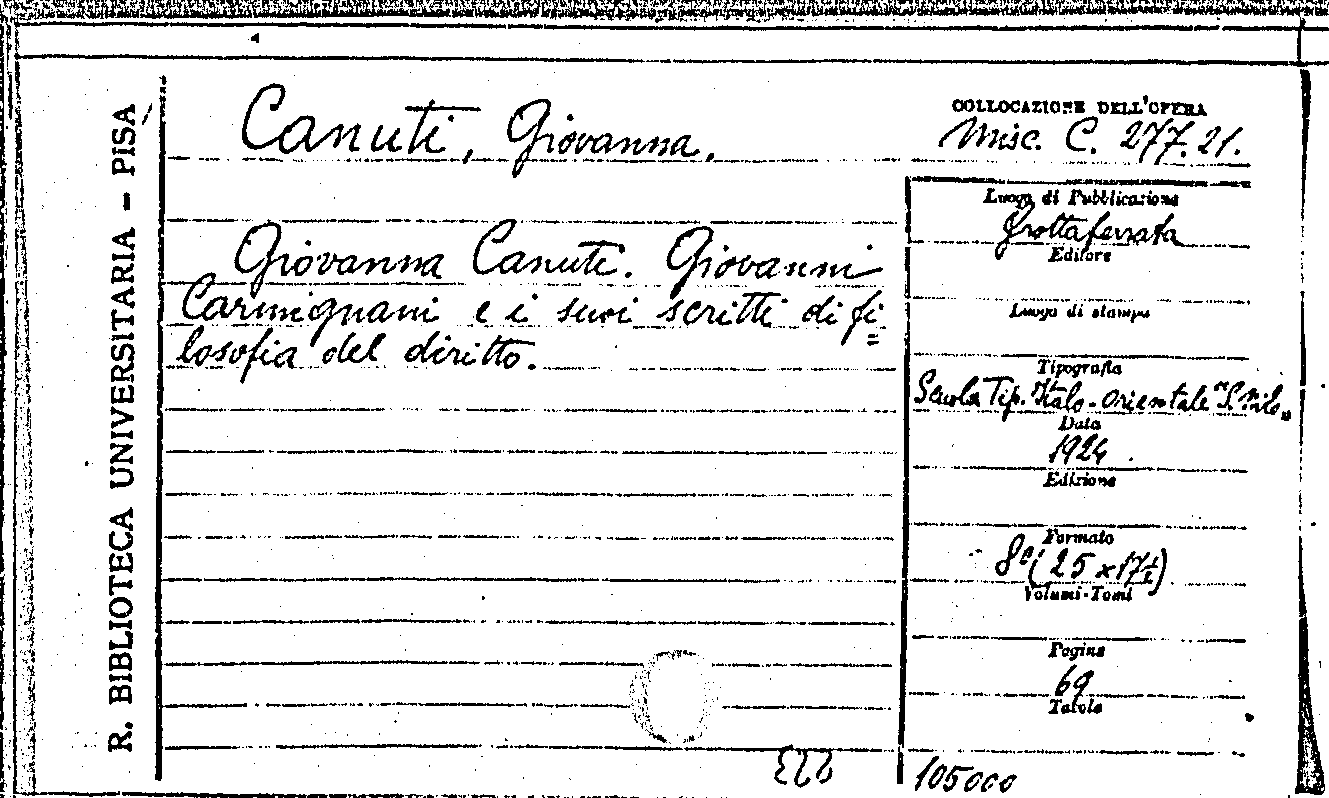 R. BIBLIOTECA UNIVERSITARIA - PISA
Canuti, Giovanna.
COLLOCAZIONE DELL'OPERA
Misc. C. 277.21.
Giovanna Canuti. Giovanni
Carmignani e i suoi scritti di fi=
losofia del diritto.
Luogo di Pubblicazione
Grottaferrata
Editore
Luogo di stampa
Tipografia
Scuola Tip. Italo-orientale "S. Nilo"
Data
1924
Edizione
Formato
8º (25 x 17½)
Volumi-Tomi
Pagine
69
Tavole
105000